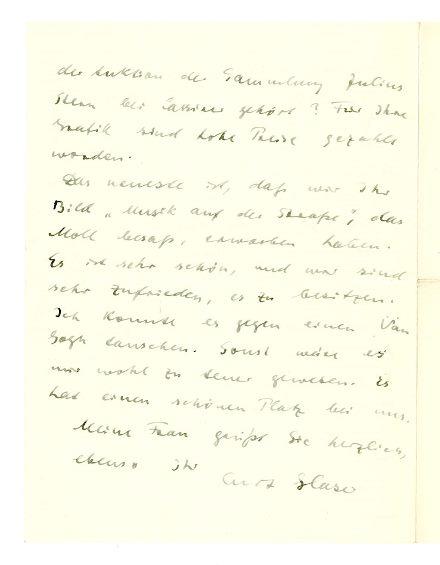 der Auktion der Sammlung Julius
Stern bei Cassirer gehört? Für Ihre
Grafik sind hohe Preise gezahlt
worden.
Das neueste ist, daß wir Ihr
Bild „Musik auf der Straße", das
Moll besaß, erworben haben.
Es ist sehr schön, und wir sind
sehr zufrieden, es zu besitzen.
Ich konnte es gegen einen Van
Gogh tauschen. Sonst wäre es
mir wohl zu teuer gewesen. Es
hat einen schönen Platz bei uns.
Meine Frau grüßt Sie herzlich,
ebenso Ihr
Curt Glaser